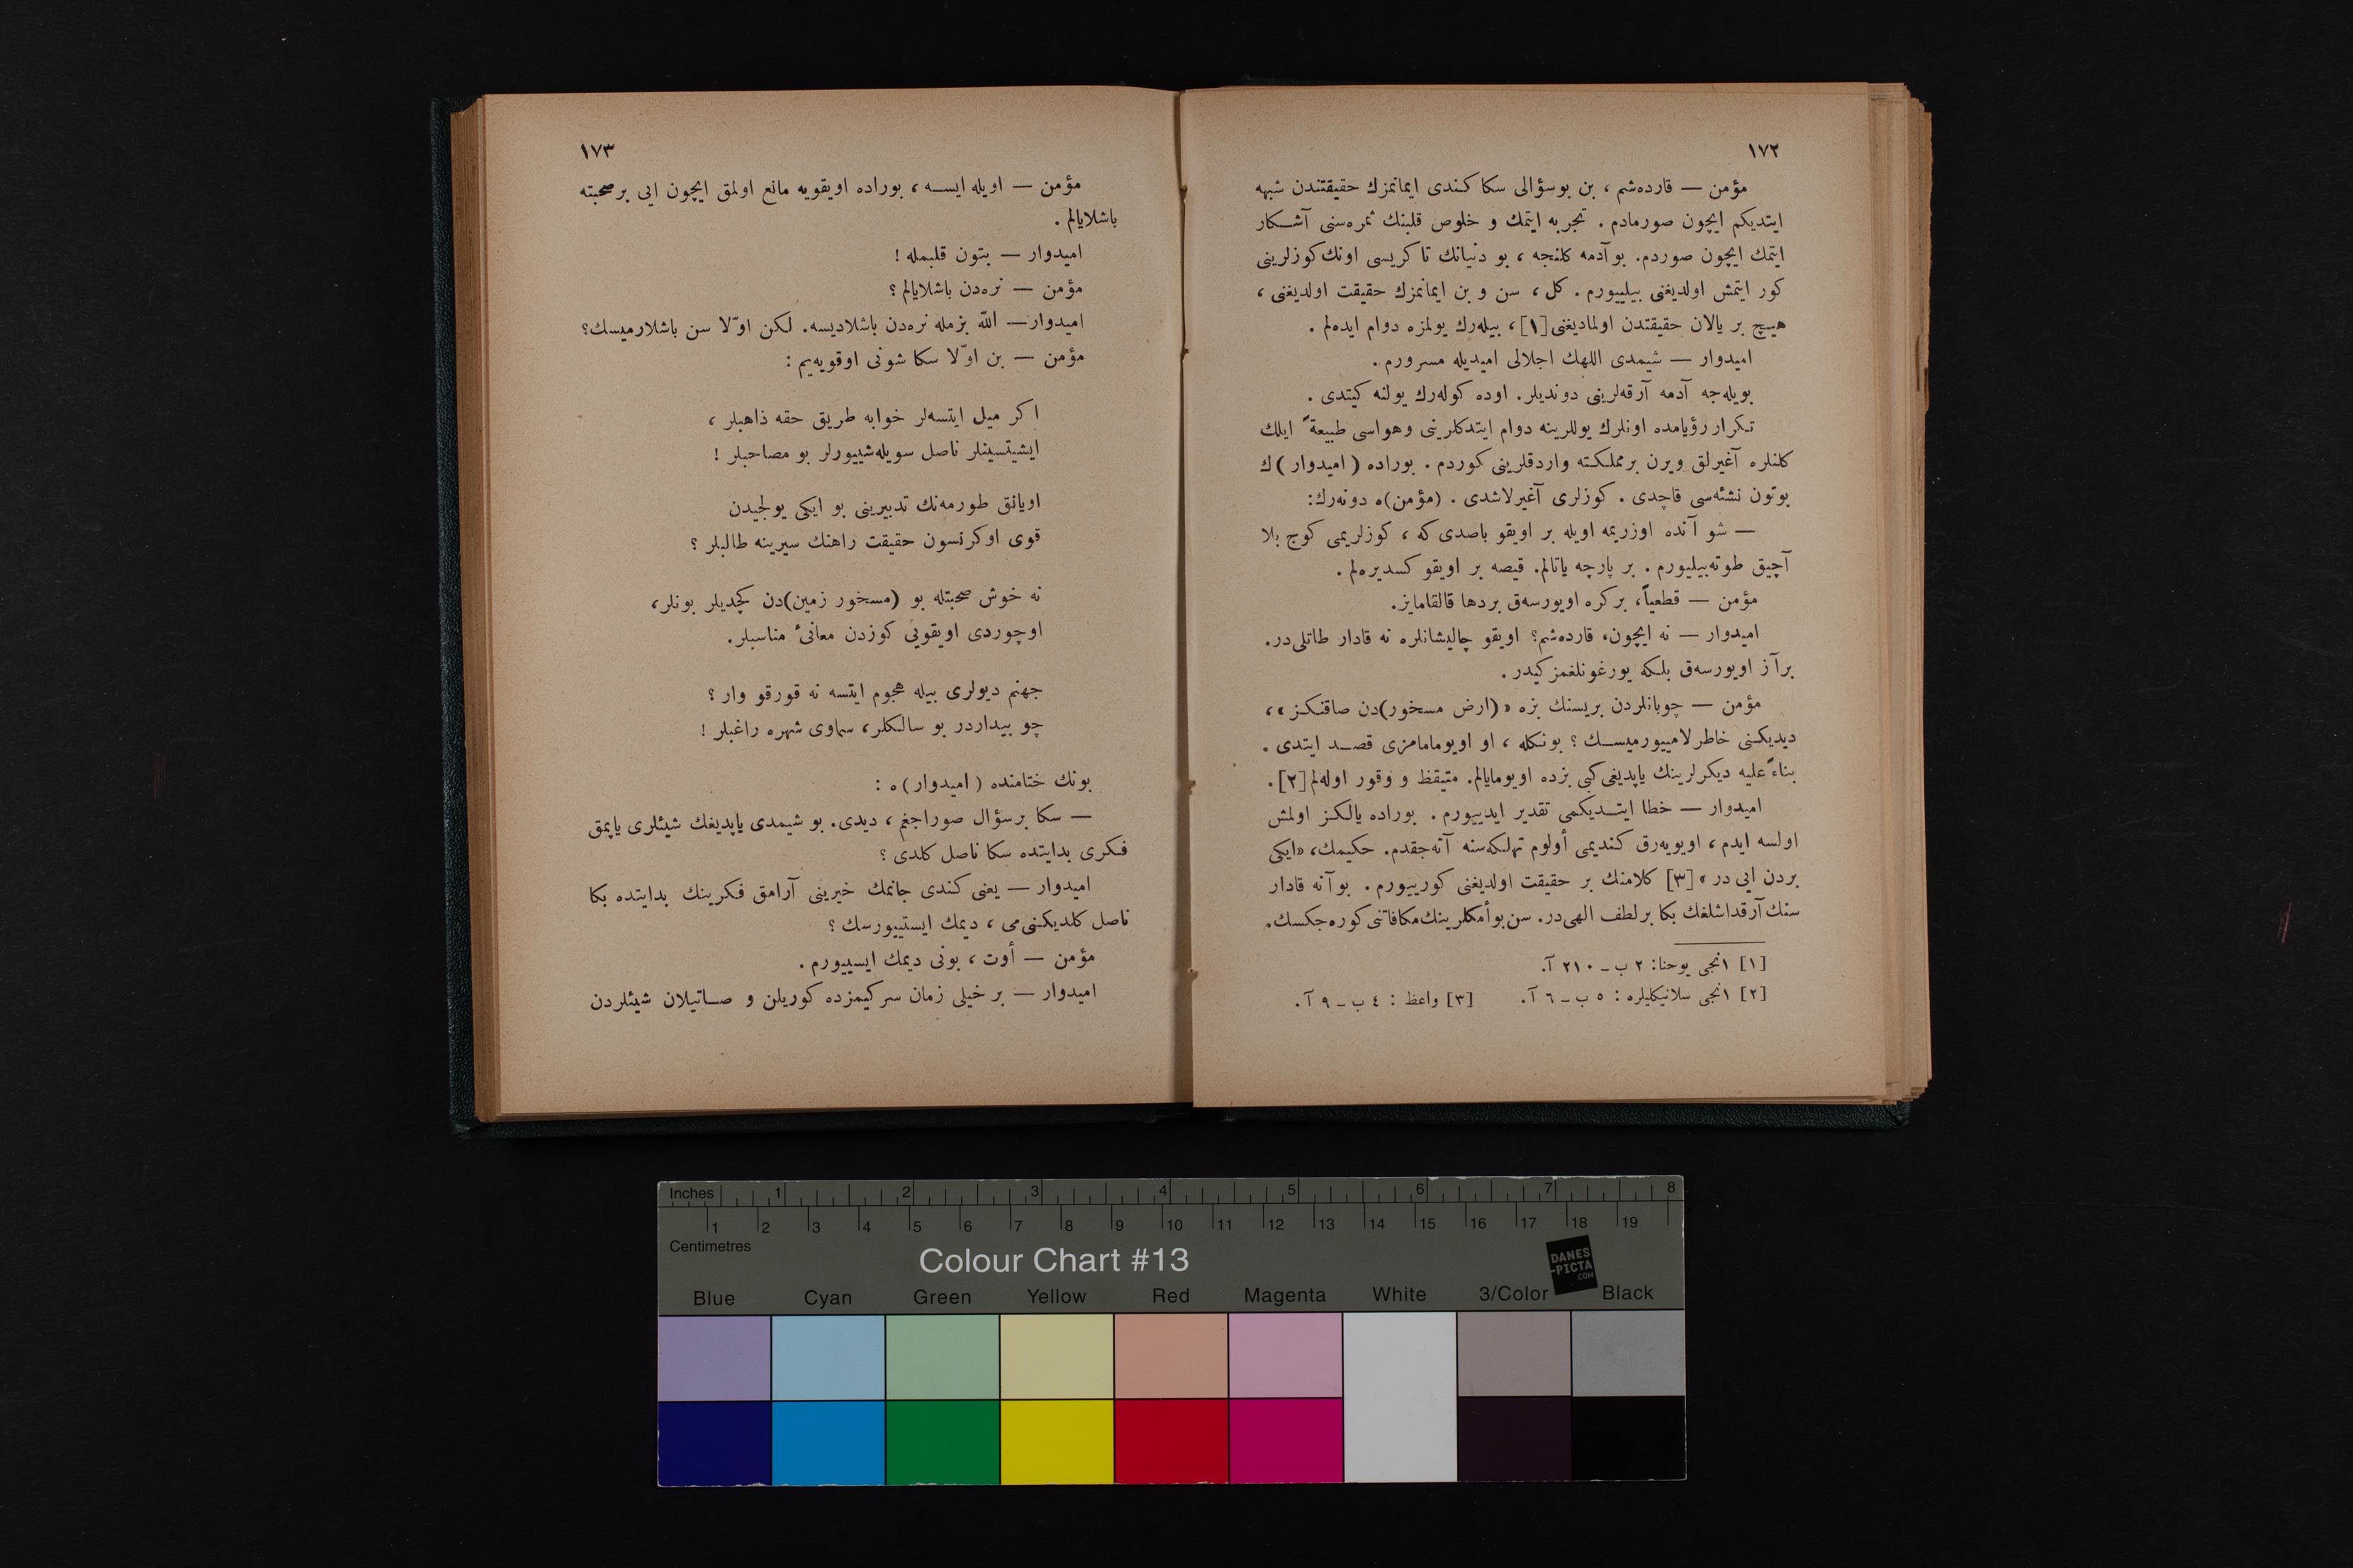 ١٧٢
مؤمن — قارده‌شم ، بن بوسؤالی سكا كندی ایمانمزك حقیقتندن شبهه
ایتدیكم ایچون صورمادم . تجربه ایتمك و خلوص قلبنك ثمره‌سنی آشكار
ایتمك ایچون صوردم. بو آدمه كلنجه ، بو دنیانك تاكریسی اونك كوزلرینی
كور ایتمش اولدیغنی بیلییورم . كل ، سن و بن ایمانمزك حقیقت اولدیغنی ،
هیچ بر یالان حقیقتدن اولمادیغنی [١]، بیله‌رك یولمزه دوام ایده‌لم .
امیدوار — شیمدی اللهك اجلالی امیدیله مسرورم .
بویله‌جه آدمه آرقه‌لرینی دوندیلر. اوده كوله‌رك یولنه كیتدی .
تكرار رؤیامده اونلرك یوللرینه دوام ایتدكلرینی وهواسی طبیعةً ایلك
كلنلره آغیرلق ویرن بر مملكته واردقلرینی كوردم . بوراده (امیدوار)ك
بوتون نشئه‌سی قاچدی . كوزلری آغیرلاشدی . (مؤمن)ه دونه‌رك:
— شو آنده اوزریمه اویله بر اویقو باصدی كه ، كوزلریمی كوج بلا
آچیق طوته‌بیلیورم . بر پارچه یاتالم. قیصه بر اویقو كسدیره‌لم .
مؤمن — قطعیاً، بركره اویورسه‌ق بردها قالقامایز.
امیدوار — نه ایچون، قارده‌شم؟ اویقو چالیشانلره نه قادار طاتلی‌در.
برآز اویورسه‌ق بلكه یورغونلغمز كیدر .
مؤمن — چوبانلردن بریسنك بزه «(ارض مسخور)دن صاقنكز» ،
دیدیكنی خاطرلامییورمیسك ؟ بونكله ، او اویومامامزی قصد ایتدی .
بناءً علیه دیكرلرینك یاپدیغی كبی بزده اویومایالم. متیقظ و وقور اوله‌لم [٢] .
امیدوار — خطا ایتدیكمی تقدیر ایدییورم . بوراده یالكز اولمش
اولسه ایدم ، اویویه‌رق كندیمی أولوم تهلكه‌سنه آته‌جقدم. حكیمك، «ایكی
بردن ایی در» [٣] كلامنك بر حقیقت اولدیغنی كورییورم . بو آنه قادار
سنك آرقداشلغك بكا بر لطف الهی‌در. سن بو أمكلرینك مكافاتنی كوره‌جكسك.
[١] ١نجی یوحنا: ٢ ب ـ ٢١٠ آ.
[٢] ١نجی سلانیكلیلره : ٥ ب ـ ٦ آ. [٣] واعظ : ٤ ب ـ ٩ آ.
١٧٣
مؤمن — اویله ایسه ، بوراده اویقویه مانع اولمق ایچون ایی بر صحبته
باشلایالم .
امیدوار — بتون قلبمله !
مؤمن — نره‌دن باشلایالم ؟
امیدوار — اللّٰه بزمله نره‌دن باشلادیسه. لكن اوّلا سن باشلارمیسك؟
مؤمن — بن اوّلا سكا شونی اوقویه‌یم :
اكر میل ایتسه‌لر خوابه طریق حقه ذاهبلر ،
ایشیتسینلر ناصل سویله‌شییورلر بو مصاحبلر !
اویانق طورمه‌نك تدبیرینی بو ایكی یولجیدن
قوی اوكرنسون حقیقت راهنك سیرینه طالبلر ؟
نه خوش صحبتله بو (مسخور زمین)دن كچدیلر بونلر،
اوچوردی اویقویی كوزدن معانیٔ مناسبلر.
جهنم دیولری بیله هجوم ایتسه نه قورقو وار ؟
چو بیداردر بو سالكلر، سماوی شهره راغبلر !
بونك ختامنده (امیدوار)ه :
— سكا برسؤال صوراجغم ، دیدی. بو شیمدی یاپدیغك شیئلری یاپمق
فكری بدایتده سكا ناصل كلدی ؟
امیدوار — یعنی كندی جانمك خیرینی آرامق فكرینك بدایتده بكا
ناصل كلدیكنی‌می ، دیمك ایستییورسك ؟
مؤمن — أوت ، بونی دیمك ایسییورم .
امیدوار — بر خیلی زمان سركیمزده كوریلن و صاتیلان شیئلردن
Inches 1 2 3 4 5 6 7 8
1 2 3 4 5 6 7 8 9 10 11 12 13 14 15 16 17 18 19
Centimetres
Colour Chart #13
DANES
-PICTA
.COM
Blue Cyan Green Yellow Red Magenta White 3/Color Black